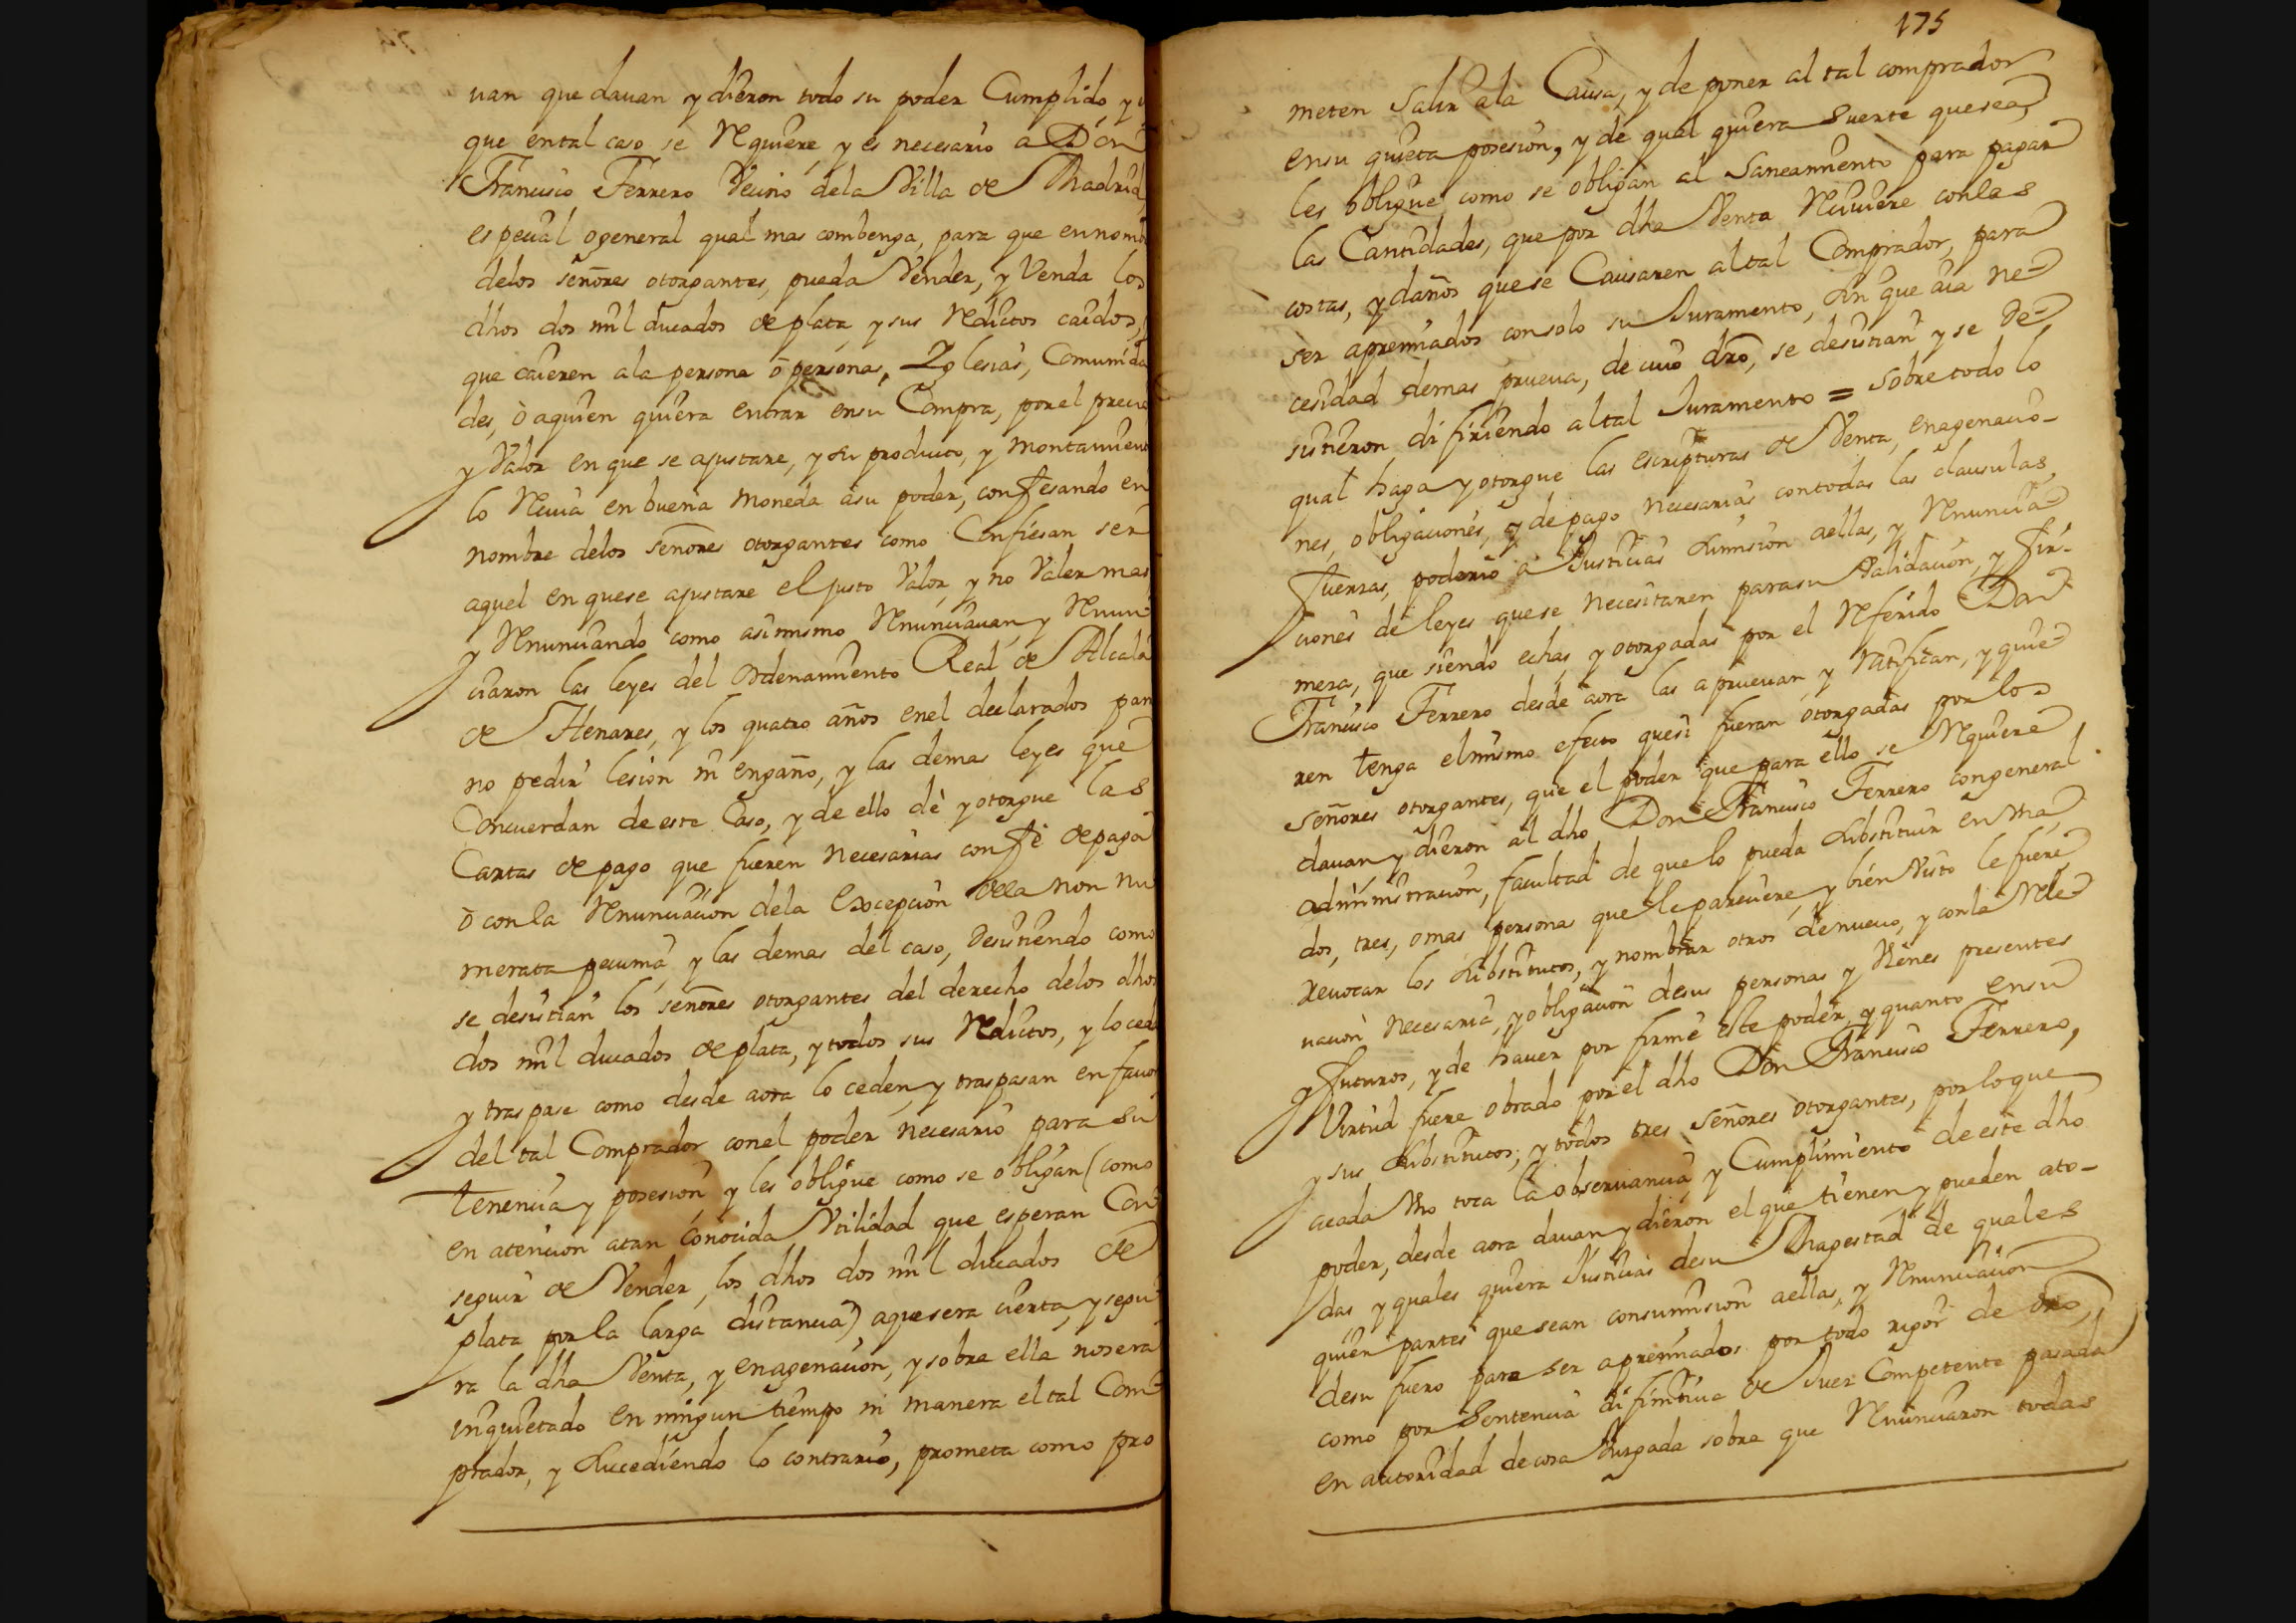 uan que dauan y dieron todo su poder Cumplido y
que en tal caso se Requiere, y es necesario a Don
Francisco Ferrero Vecino dela Villa de Madrid,
especial o general qual mas combenga, para que en nom
delos señores otorgantes, pueda Vender, y Venda los
dhos dos mil ducados de plata, y sus Reditos caidos,
que caieren a la persona ò personas, Yglesias, Comunida
des, ò aquien quiera entrar en su Compra, por el precio
y Valor en que se ajustare, y su producto, y montamiento
lo Reciua en buena moneda àsu poder, confesando en
nombre delos señores otorgantes como Confiesan ser
aquel en que se ajustare el justo Valor, y no Valer mas
y Renunciando como asimismo Renunciauan, y Renun-
ciaron las leyes del ordenamiento Real de Alcalà
de Henares, y los quatro años en el declarados para
no pedir lesion ni engaño, y las demas leyes que
Concuerdan de este Caso, y de ello dè y otorgue las
Cartas de pago que fueren necesarias con fè de paga
ò con la Renunciacion dela excepcion dela non nu
merata pecunia, y las demas del caso, desistiendo como
se desistian los señores otorgantes del derecho delos dhos
dos mil ducados de plata, y todos sus Reditos, y lo ceda
y traspase como desde aora lo ceden, y traspasan en fauor
del tal Comprador con el poder necesario para su
tenencia y posesion, y les obligue como se obligan (como
en atencion atan conocida Vtilidad que esperan Con-
seguir de Vender los dhos dos mil ducados de
plata por la larga distancia) aque sera cierta, y segu-
ra la dha Venta, y enagenacion, y sobre ella no sera
inquietado en ningun tiempo ni manera el tal Com-
prador, y sucediendo lo contrario, prometa como pro
175
meten Salir ala Causa, y de poner al tal comprador
en su quieta posesion, y de qual quiera suerte que sea,
les obligue como se obligan al Saneamiento para pagar
las Cantidades, que por dha Venta Reciuiere con las
costas, y daños que se Causaren al tal Comprador, para
ser apremiados con solo su Juramento, sin que aia ne-
cesidad demas prueua, de cuio dro, se desistian y se de-
sistieron difiriendo al tal Juramento = sobre todo lo
qual haga y otorgue las escripturas de Venta, enagenacio-
nes, obligaciones, y de pago necesarias con todas las clausulas,
fuerzas, poderio à Justicias sumision aellas, y Renuncia-
ciones de leyes que se necesitaren para su Validacion, y fir-
meza, que siendo echas, y otorgadas por el Referido Don
Francisco Ferrero desde aora las aprueuan, y Ratifican, y quie-
ren tenga el mismo efecto que si fueran otorgadas por los
señores otorgantes, que el poder que para ello se Requiere
dauan y dieron al dho Don Francisco Ferrero con general
administracion, facultad de que lo pueda substituir en vna,
dos, tres, o mas personas que le pareciere, y bien Visto le fuere
reuocar los substitutos, y nombrar otros de nueuo, y con la Rele-
uacion necesaria, y obligacion desus personas y Vienes presentes
y futuros, y de hauer por firme este poder, y quanto en su
Virtud fuere obrado por el dho Don Francisco Ferrero,
y sus substitutos; y todos tres señores otorgantes, por lo que
acada Vno toca la obseruancia y Cumplimiento de este dho
poder, desde aora dauan y dieron el que tienen y pueden ato-
das y quales quiera Justicias desu Magestad de quales
quier partes que sean con sumision aellas, y Renunciacion
desu fuero para ser apremiados por todo rigor de dro,
como por Sentencia difinitiua de Juez Competente pasada
en autoridad de cosa Juzgada sobre que Renunciaron todas